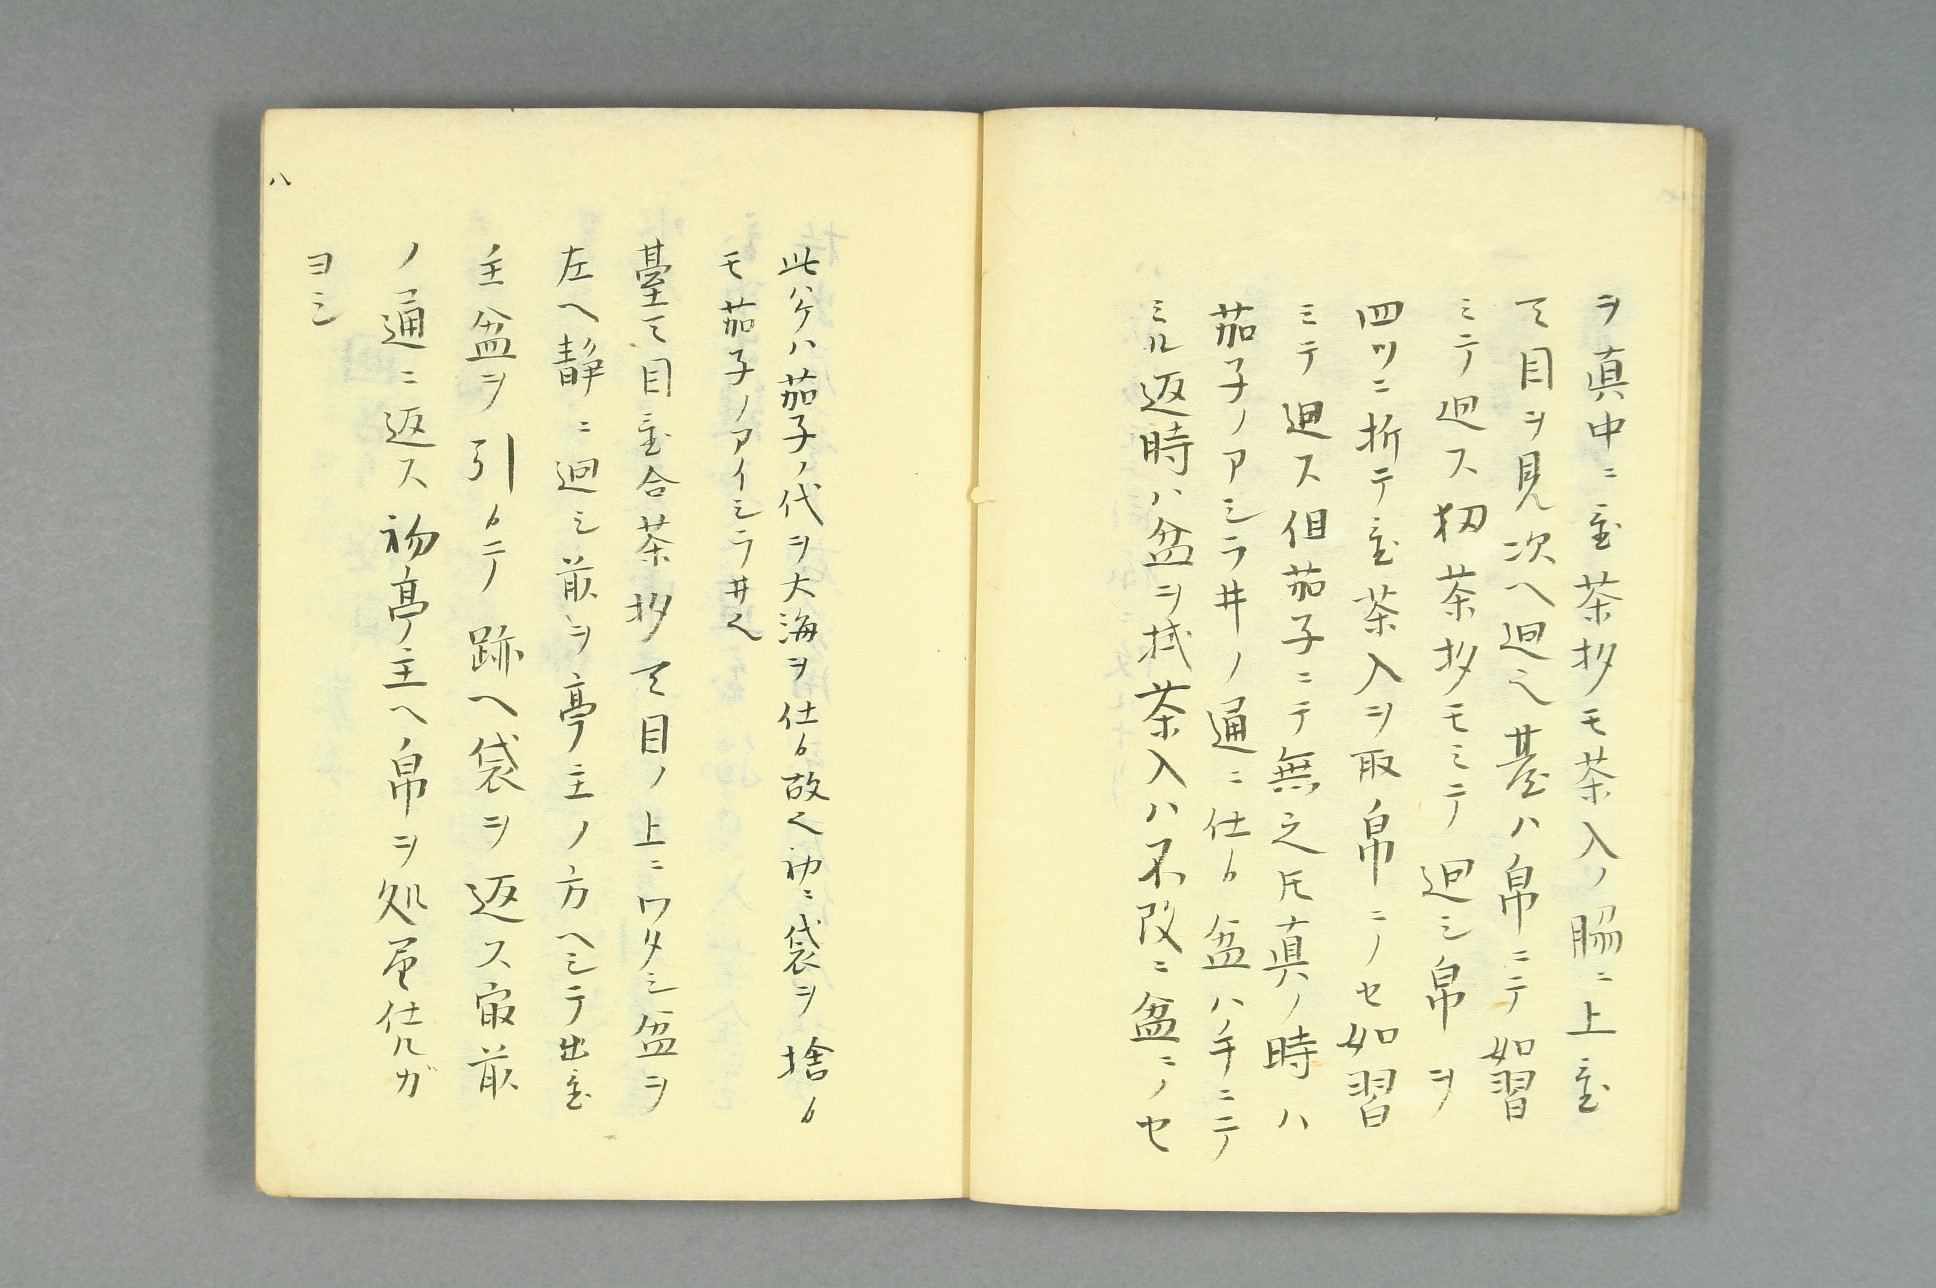 ヲ真中ニ置茶杓モ茶入ノ脇ニ上置
天目ヲ見次ヘ廻ス臺ハ帛ニテ如習
ミテ廻ス扨茶杓モミテ廻シ帛ヲ
四ツニ折テ置茶入ヲ取帛ニノセ如習
ミテ廻ス但茄子ニテ無之トモ真ノ時ハ
茄子ノアシラ井ノ通ニ仕ル盆ハ手ニテ
ミル返時ハ盆ヲ拭茶入ハ不改ニ盆ニノセ
此ハ茄子ノ代ヲ大海ヲ仕ル故也初ニ袋ヲ捨ル
モ茄子ノアイシラ井也
臺天目置合茶杓天目ノ上ニワタシ盆ヲ
左ヘ静ニ廻シ前ヲ亭主ノ方ヘシテ出置
主盆ヲ引ルニテ跡ヘ袋ヲ返ス最前
ノ通ニ返ス初亭主ヘ帛ヲ処望仕ルガ
ヨシ
八